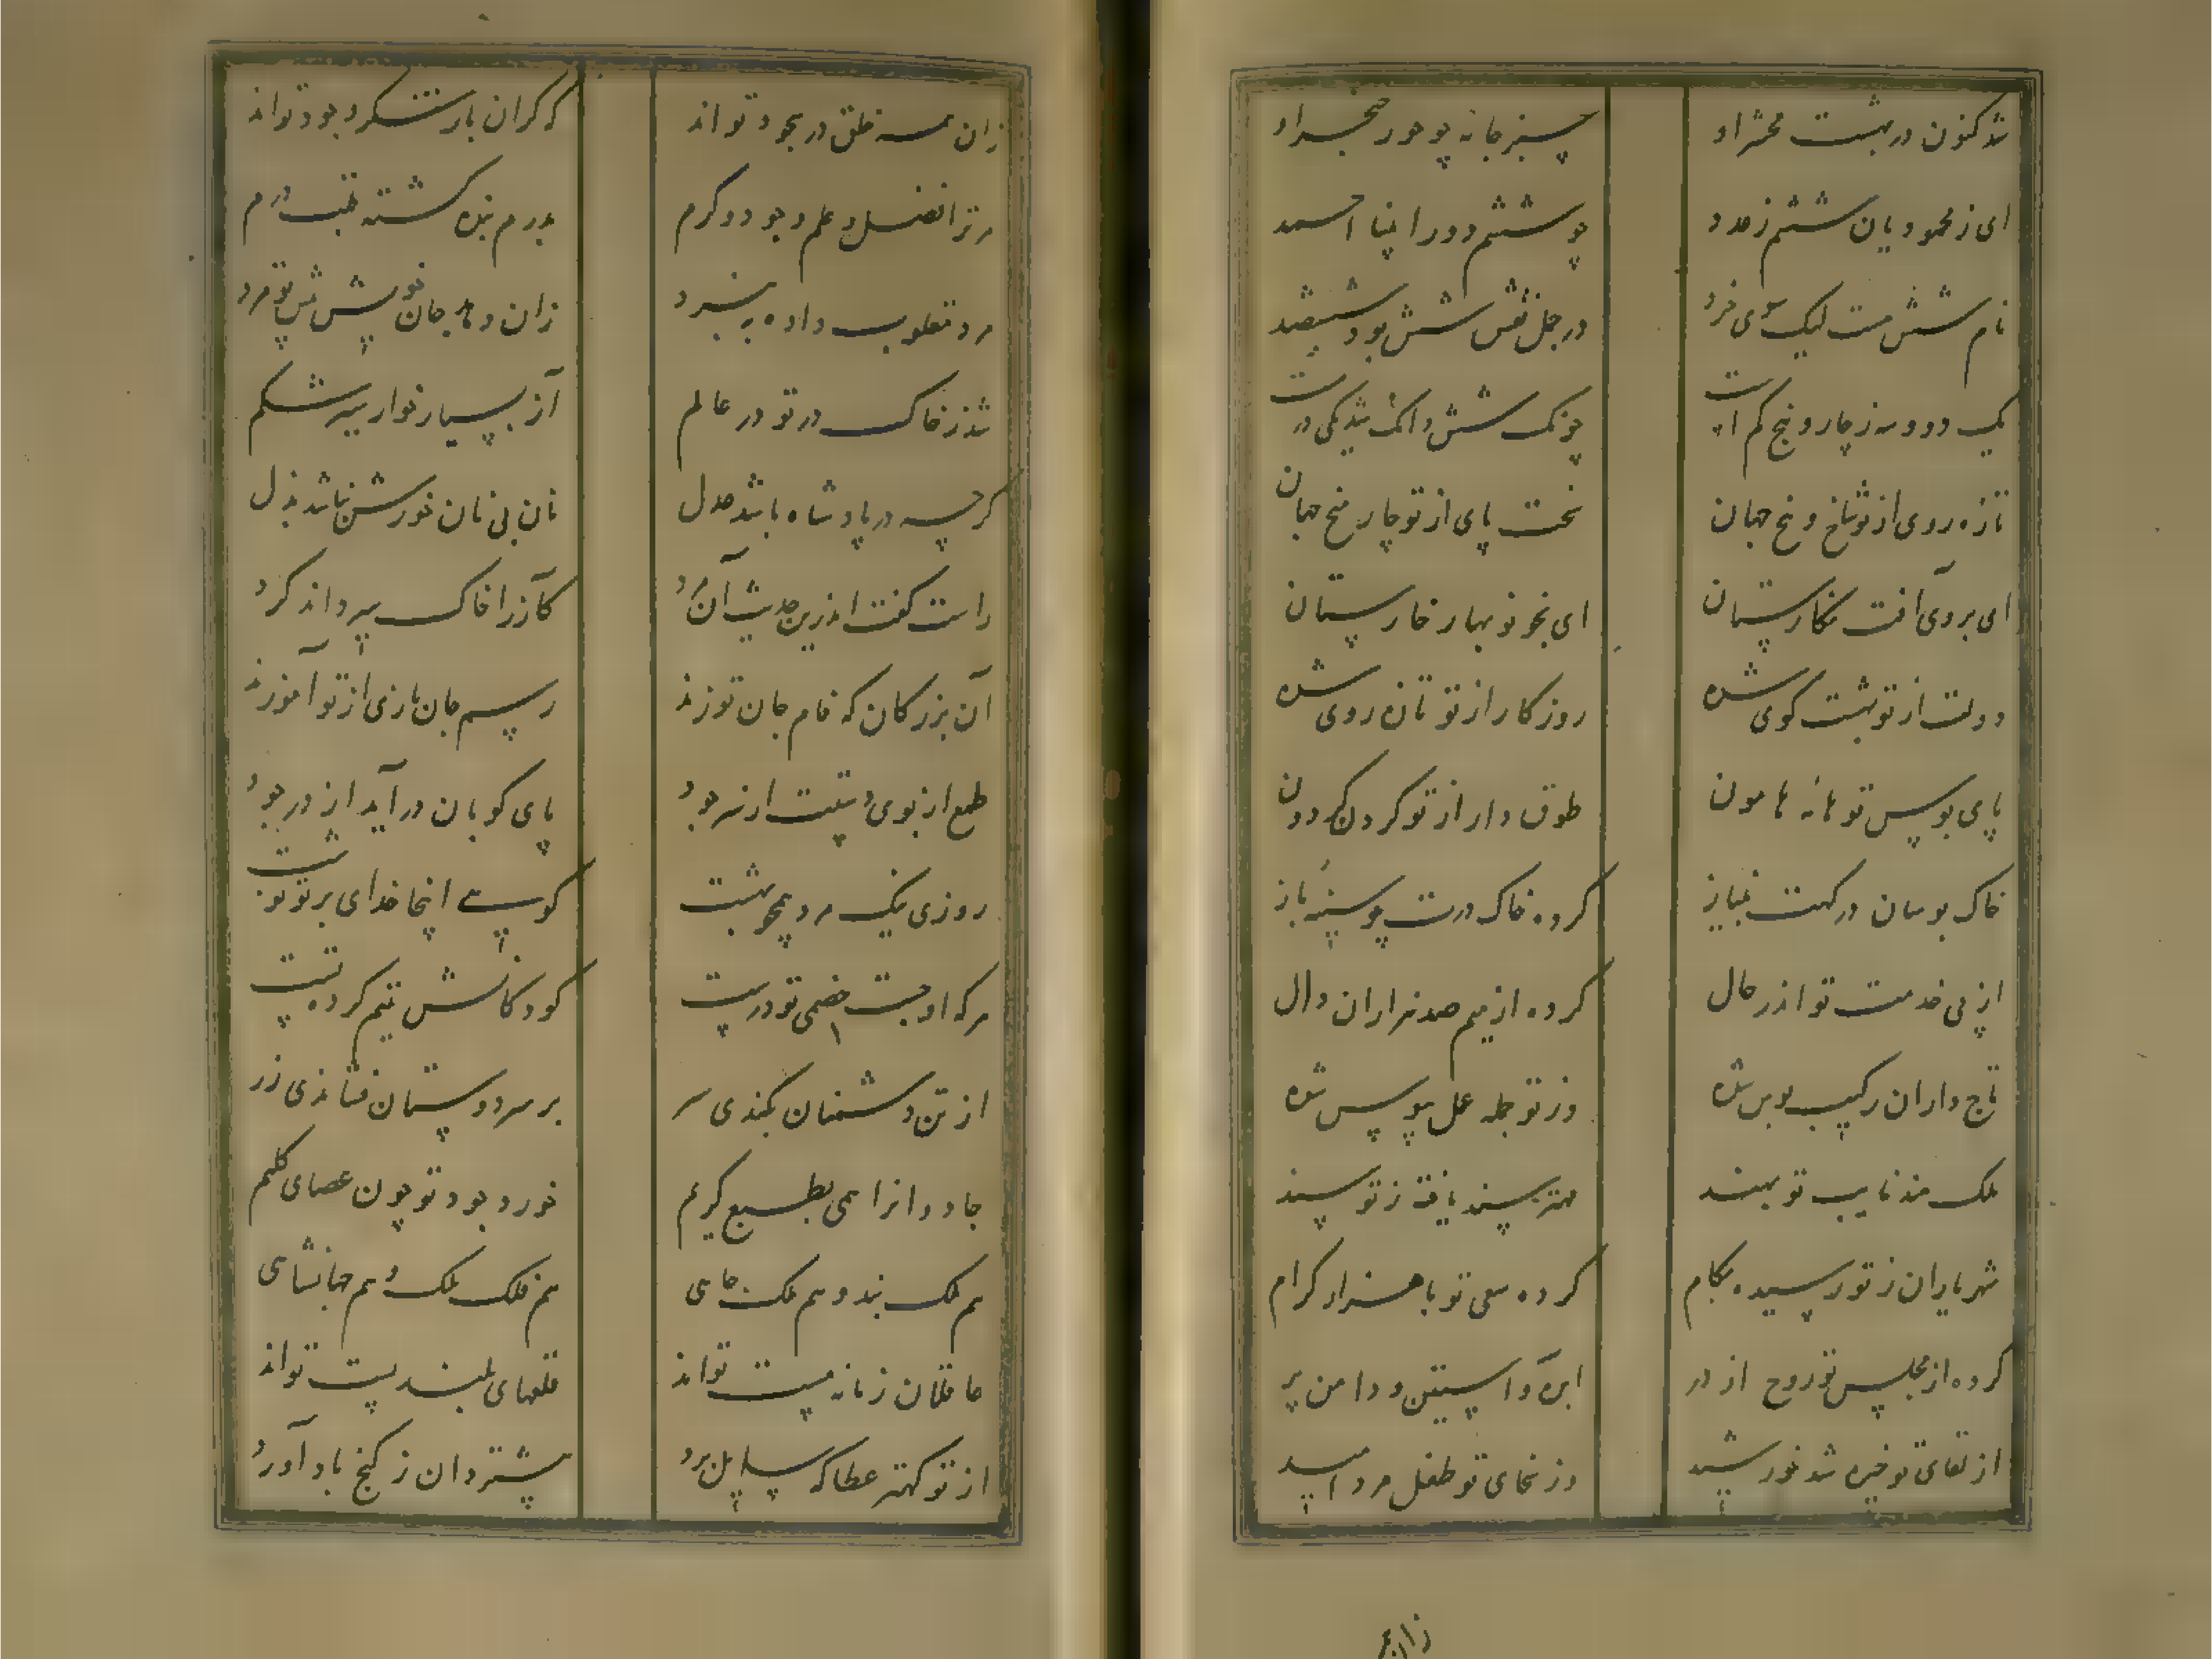 شد کنون در بهشت محشر او
سبز جامه چو حور خنجر او
ای ز محمودیان ششم ز عدد
چو ششم دور انبیا احمد
نام شش هست لیک سوی خرد
در جمل نقش شش بود ششصد
یک و دو و سه ز چار و پنج کم است
چونک شش دانک شد یکی درست
تازه روی از تو شاخ و بیخ جهان
سخت پای از تو چار میخ جهان
ای بروی آفت نگارستان
ای بخو نوبهار خارستان
دولت از تو بهشت کوی شده
روزکار از تو تازه روی شده
پای بوس تو هامه هامون
طوق دار از تو کردن کردون
خاک بوسان درکهت بنیاز
کرده خاک درت چو سینه باز
از پی خدمت تو اندر حال
کرده از میم صد هزاران دال
تاج داران رکیب بوس شده
وز تو جمله عمل سوس شده
ملک هند نایب تو بهند
شهریاران ز تو رسیده بکام
کرده سعی تو با هزار کرام
کرده از مجلس تو روح از در
ابره و آستین و دامن پر
از لقای تو خیره شد خورشید
وز سخای تو طفل مرد امید
زان همه
زان همه خلق در سجود تو اند
که کران بار شکر وجود تو اند
مر ترا فضل و علم و جود و کرم
بدرم بنده کشته نیست درم
مرد مغلوب داده به نبرد
زان دهد جان خویش پیش تو مرد
شد ز خاک در تو در عالم
آز بسیار خوار سیر شکم
کرچه در پادشاه باشد عدل
نان بی نان خورش نباشد بذل
راست گفت اندرین حدیث آن مرد
کآز را خاک سیر داند کرد
آن بزرکان که خام جان توزند
رسم جان بازی از تو آموزند
طمع از بوی نیست از سر جود
پای کوبان درآید از در جود
روزی نیک مرد همچو بهشت
کوسی اینجا خدای بر تو نوشت
هرکه او جست خصمی تو درست
کودکانش یتیم کرده تست
از تن دشمنان بکندی سر
بر سر دوستان فشاندی زر
جادوانرا همی بطبع کریم
خورد جود تو چون عصای کلیم
هم ملک بند و هم ملک جاهی
هم فلک ملک و هم جهانشاهی
عاقلان زمانه مست تو اند
قلعهای بلند پست تو اند
از تو کهتر عطا که سایل برد
بیشتر دان ز کنج باد آورد